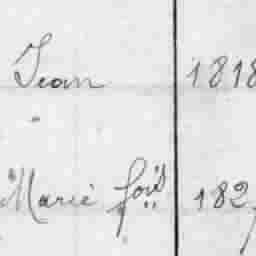 Jean 1818
Marie fois 182